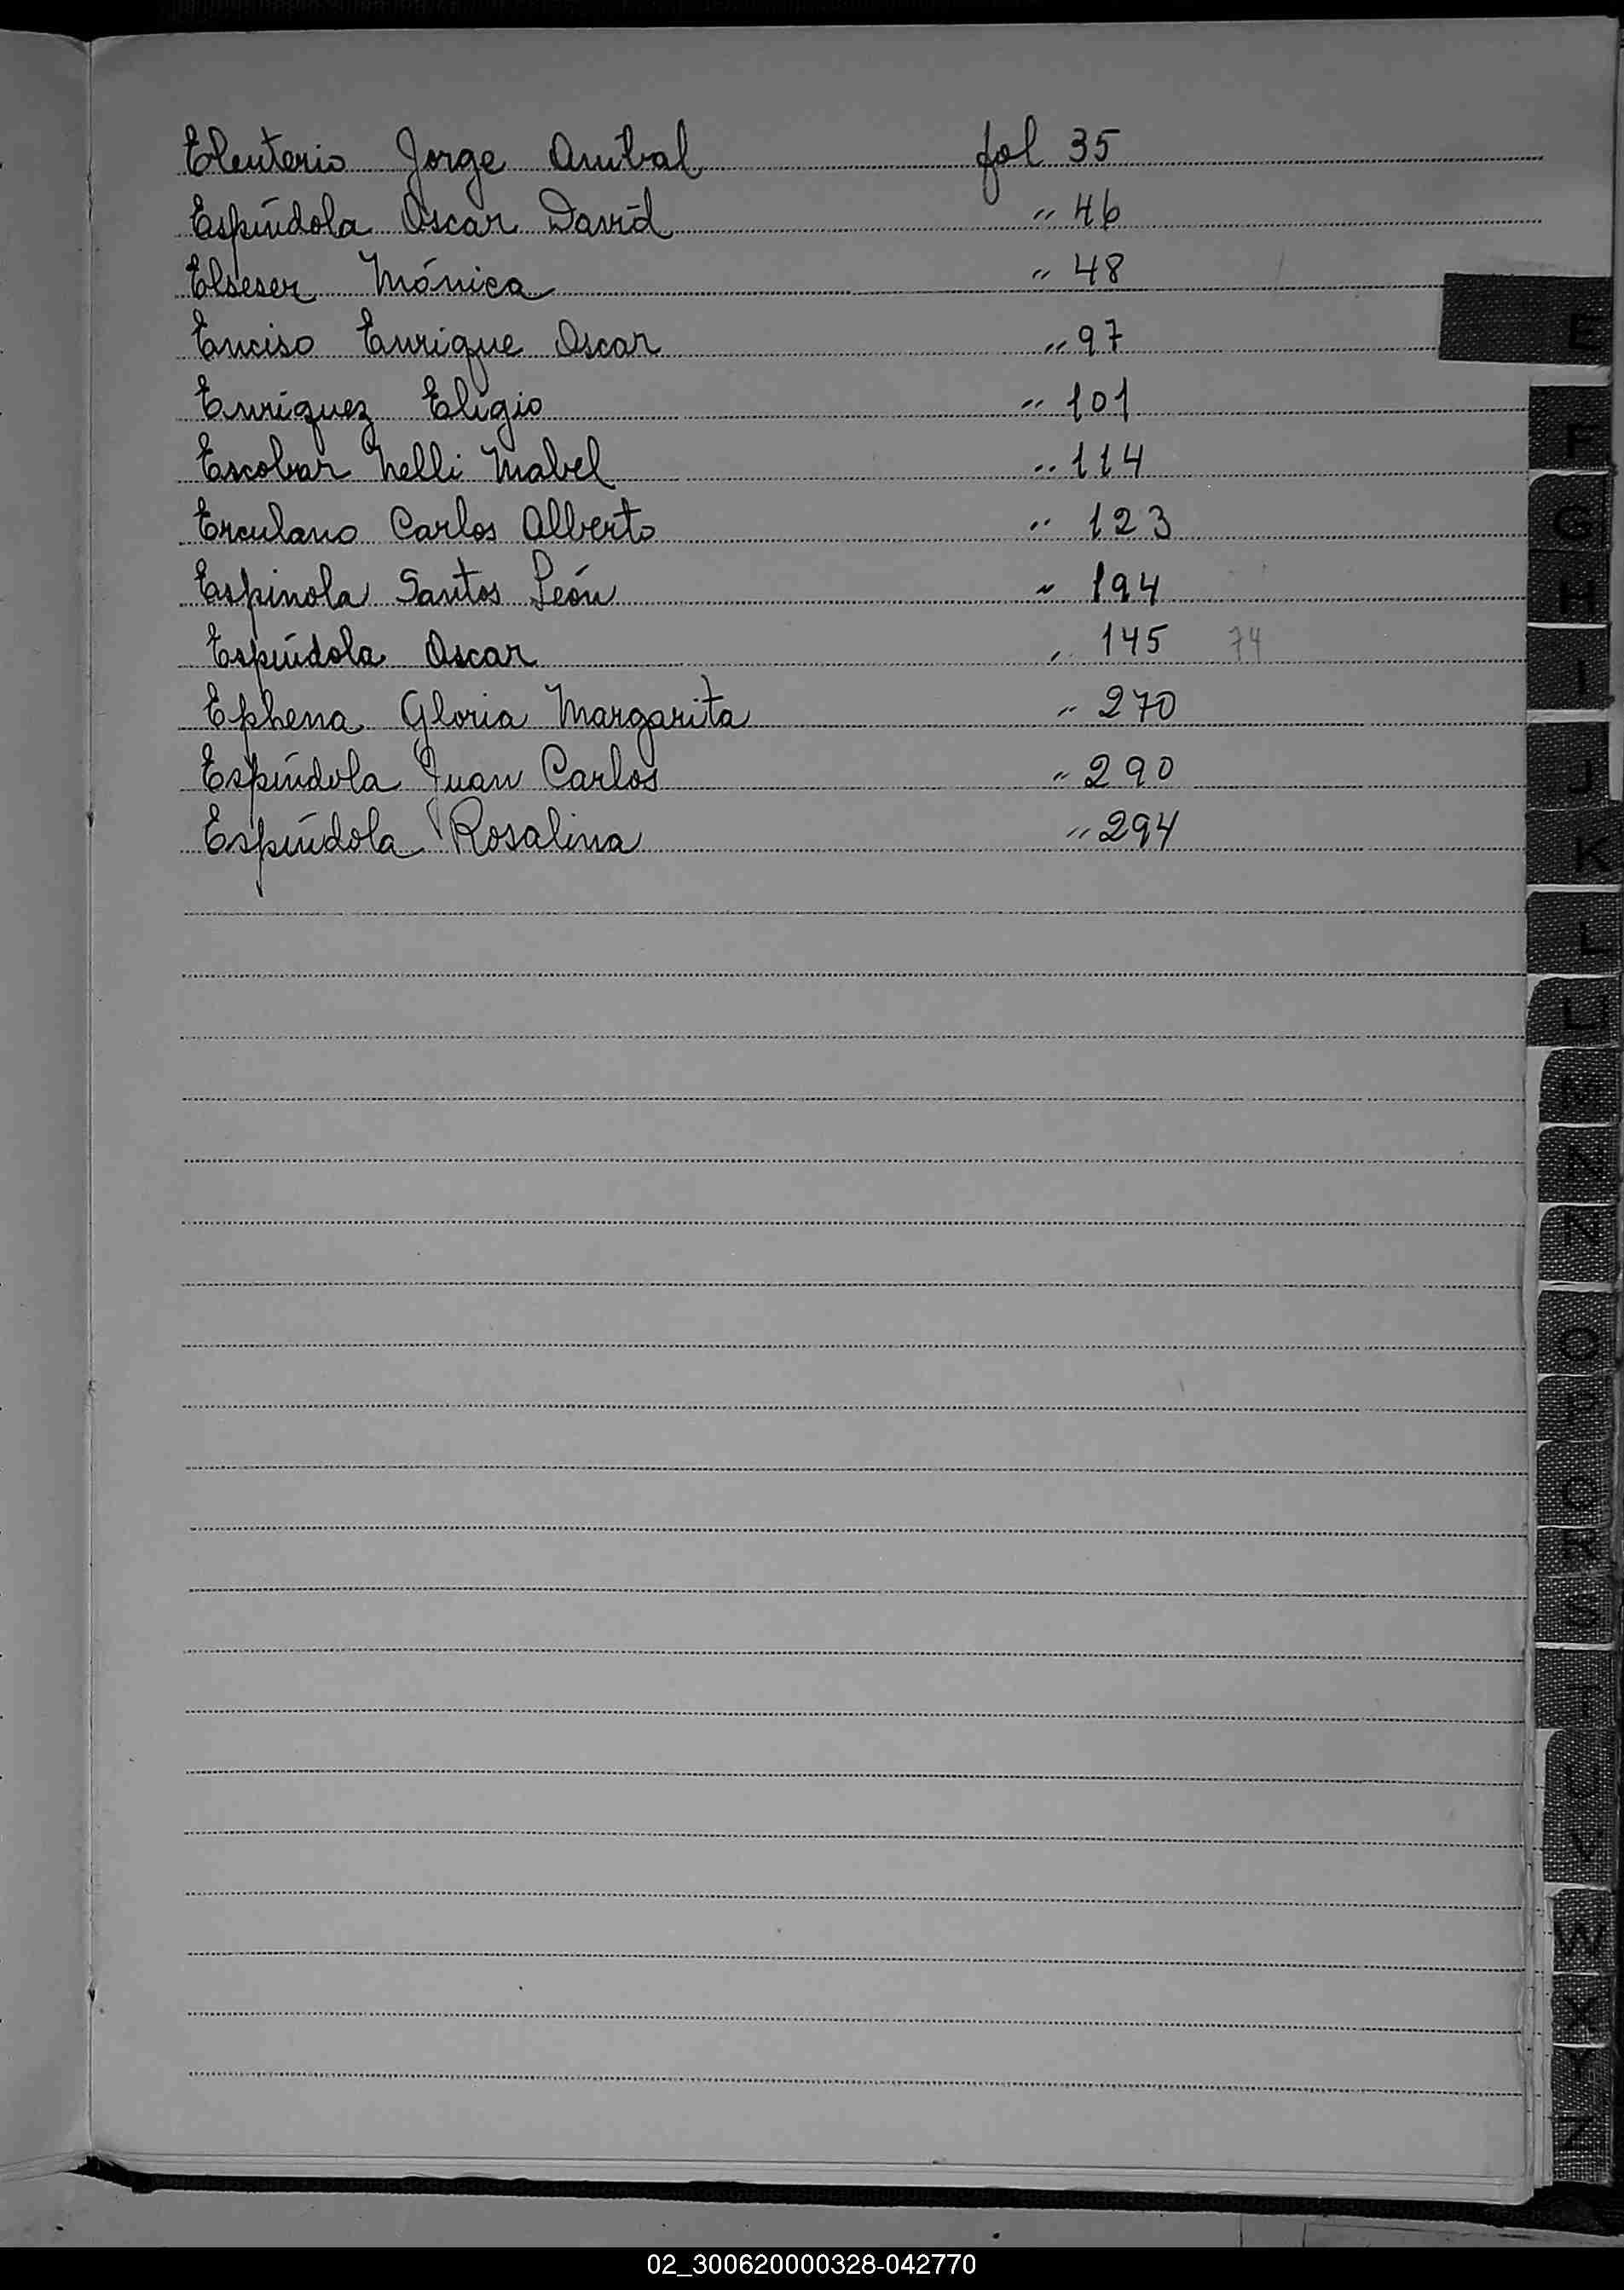 Eleuterio Jorge Anibal fol 35
Espíndola Oscar David " 46
Elseser Mónica " 48
Enciso Enrique Oscar " 97
Enriquez Eligio " 101
Escobar Nelli Mabel " 114
Erculano Carlos Alberto " 123
Espinola Santos León " 194
Espíndola Oscar " 145 74
Ephena Gloria Margarita " 270
Espíndola Juan Carlos " 290
Espíndola Rosalina " 294
E
F
G
H
I
J
K
L
LL
M
N
Ñ
O
P
Q
R
S
T
U
V
W
X
Y
Z
02_300620000328-042770